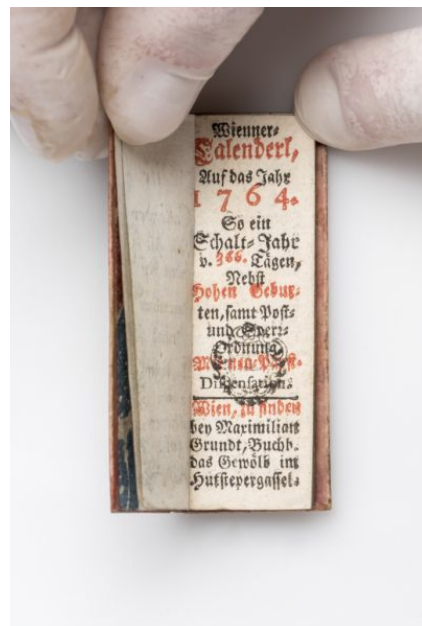 Wienner-
Calenderl,
Auf das Jahr
1764.
So ein
Schalt-Jahr
v. 366. Tägen,
Nebst
Hohen Gebur-
ten, samt Post-
und Sperr-
Ordnung
Dispensation.
Wien, zu finden
bey Maximilian
Grundt, Buchb.
das Gewölb im
Hutstepergassel.